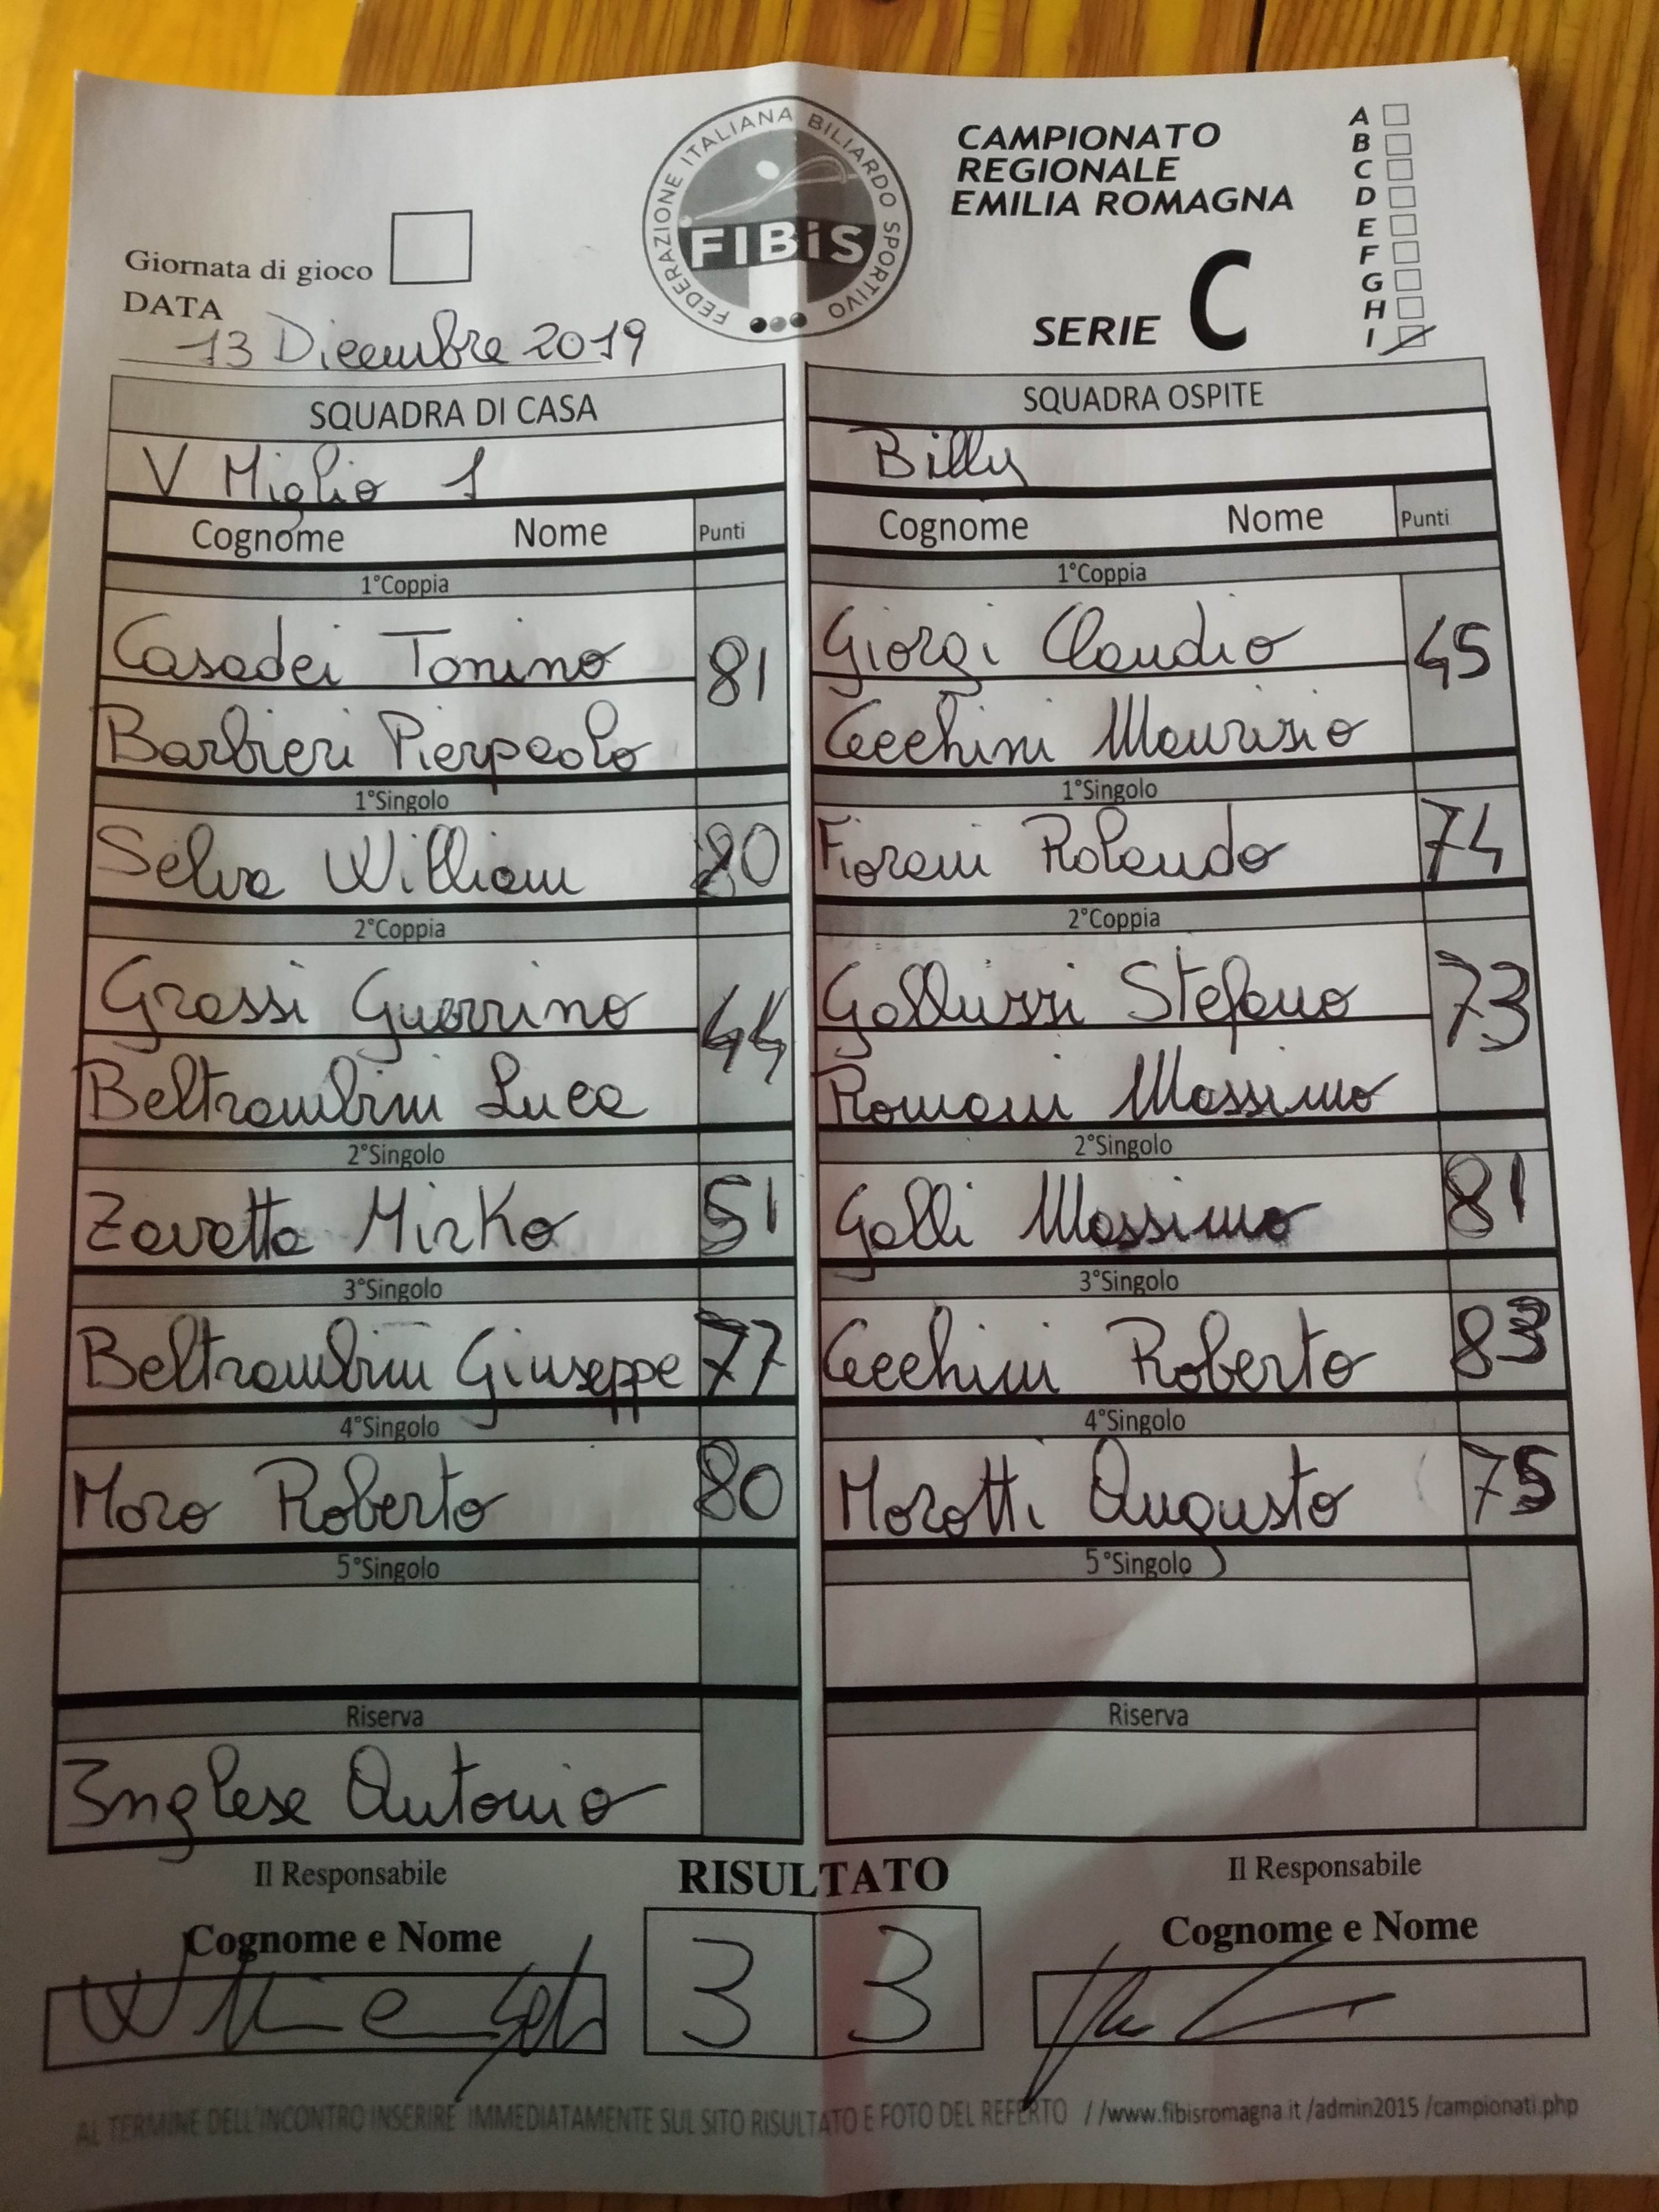 FEDERAZIONE ITALIANA BILIARDO SPORTIVO
FIBiS
CAMPIONATO
REGIONALE
EMILIA ROMAGNA
SERIE C
A
B
C
D
E
F
G
H
I
Giornata di gioco
DATA
13 Dicembre 2019
SQUADRA DI CASA
V Miglio 1
Cognome Nome Punti
1°Coppia
Casadei Tonino 81
Barbieri Pierpaolo
1°Singolo
Selva William 80
2°Coppia
Grassi Guerrino 44
Beltrambini Luca
2°Singolo
Zavatta Mirko 51
3°Singolo
Beltrambini Giuseppe 77
4°Singolo
Moro Roberto 80
5°Singolo
Riserva
Inglese Antonio
SQUADRA OSPITE
Billy
Cognome Nome Punti
1°Coppia
Giorgi Claudio 45
Cecchini Maurizio
1°Singolo
Fiorani Rolando 74
2°Coppia
Galluzzi Stefano 73
Romani Massimo
2°Singolo
Galli Massimo 81
3°Singolo
Cecchini Roberto 83
4°Singolo
Morotti Augusto 75
5°Singolo
Riserva
Il Responsabile
Cognome e Nome
RISULTATO
3 3
Il Responsabile
Cognome e Nome
AL TERMINE DELL'INCONTRO INSERIRE IMMEDIATAMENTE SUL SITO RISULTATO E FOTO DEL REFERTO //www.fibisromagna.it /admin2015 /campionati.php